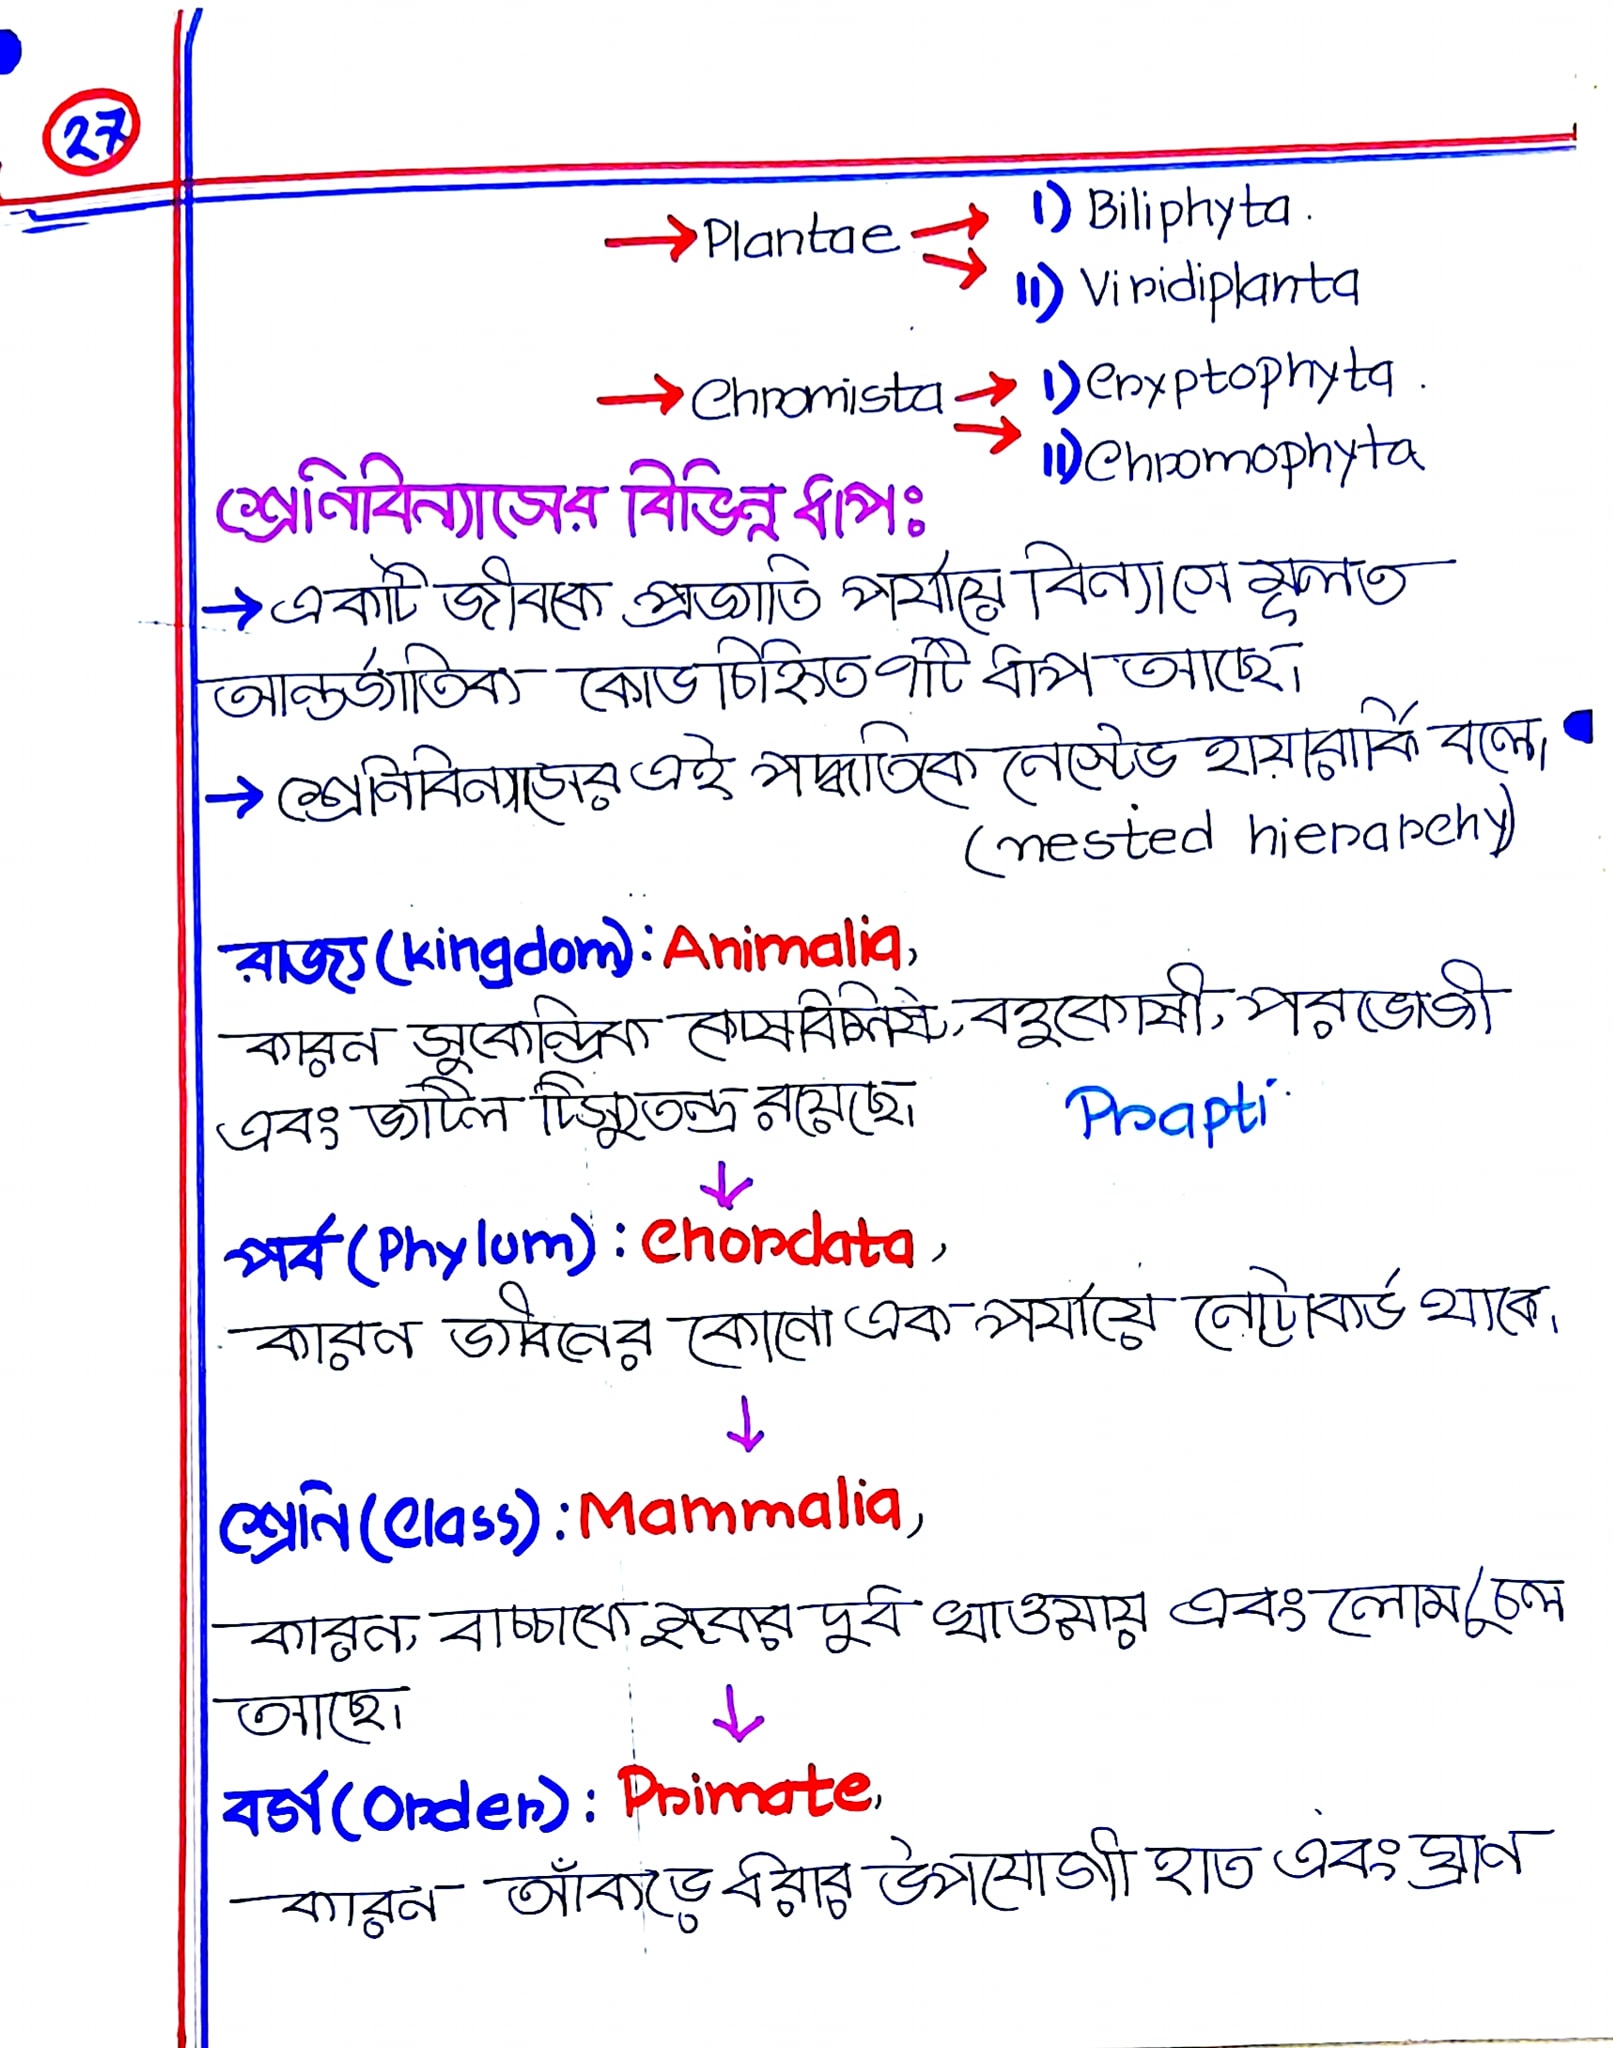 27
→ Plantae → I) Biliphyta.
→ II) Viridiplanta
→ Chromista → I) Cryptophyta.
→ II) Chromophyta
শ্রেনিবিন্যাসের বিভিন্ন ধাপঃ
→ একটি জীবকে প্রজাতি পর্যায়ে বিন্যাসে মূলত
আন্তর্জাতিক কোড চিহ্নিত ৭টি ধাপ আছে।
→ শ্রেনিবিন্যাসের এই পদ্ধতিকে নেস্টেড হায়ারার্কি বলে।
(nested hierarchy)
রাজ্য (kingdom): Animalia,
কারন সুকেন্দ্রিক কোষবিশিষ্ট, বহুকোষী, পরভোজী
এবং জটিল টিস্যুতন্ত্র রয়েছে। Prapti
↓
পর্ব (Phylum): Chordata,
কারন জীবনের কোনো এক পর্যায়ে নোটোকর্ড থাকে।
↓
শ্রেনি (Class): Mammalia,
কারন, বাচ্চাকে বুকের দুধ খাওয়ায় এবং লোম/চুল
আছে। ↓
বর্গ (Order): Primate,
কারন আঁকড়ে ধরার উপযোগী হাত এবং ঘ্রান